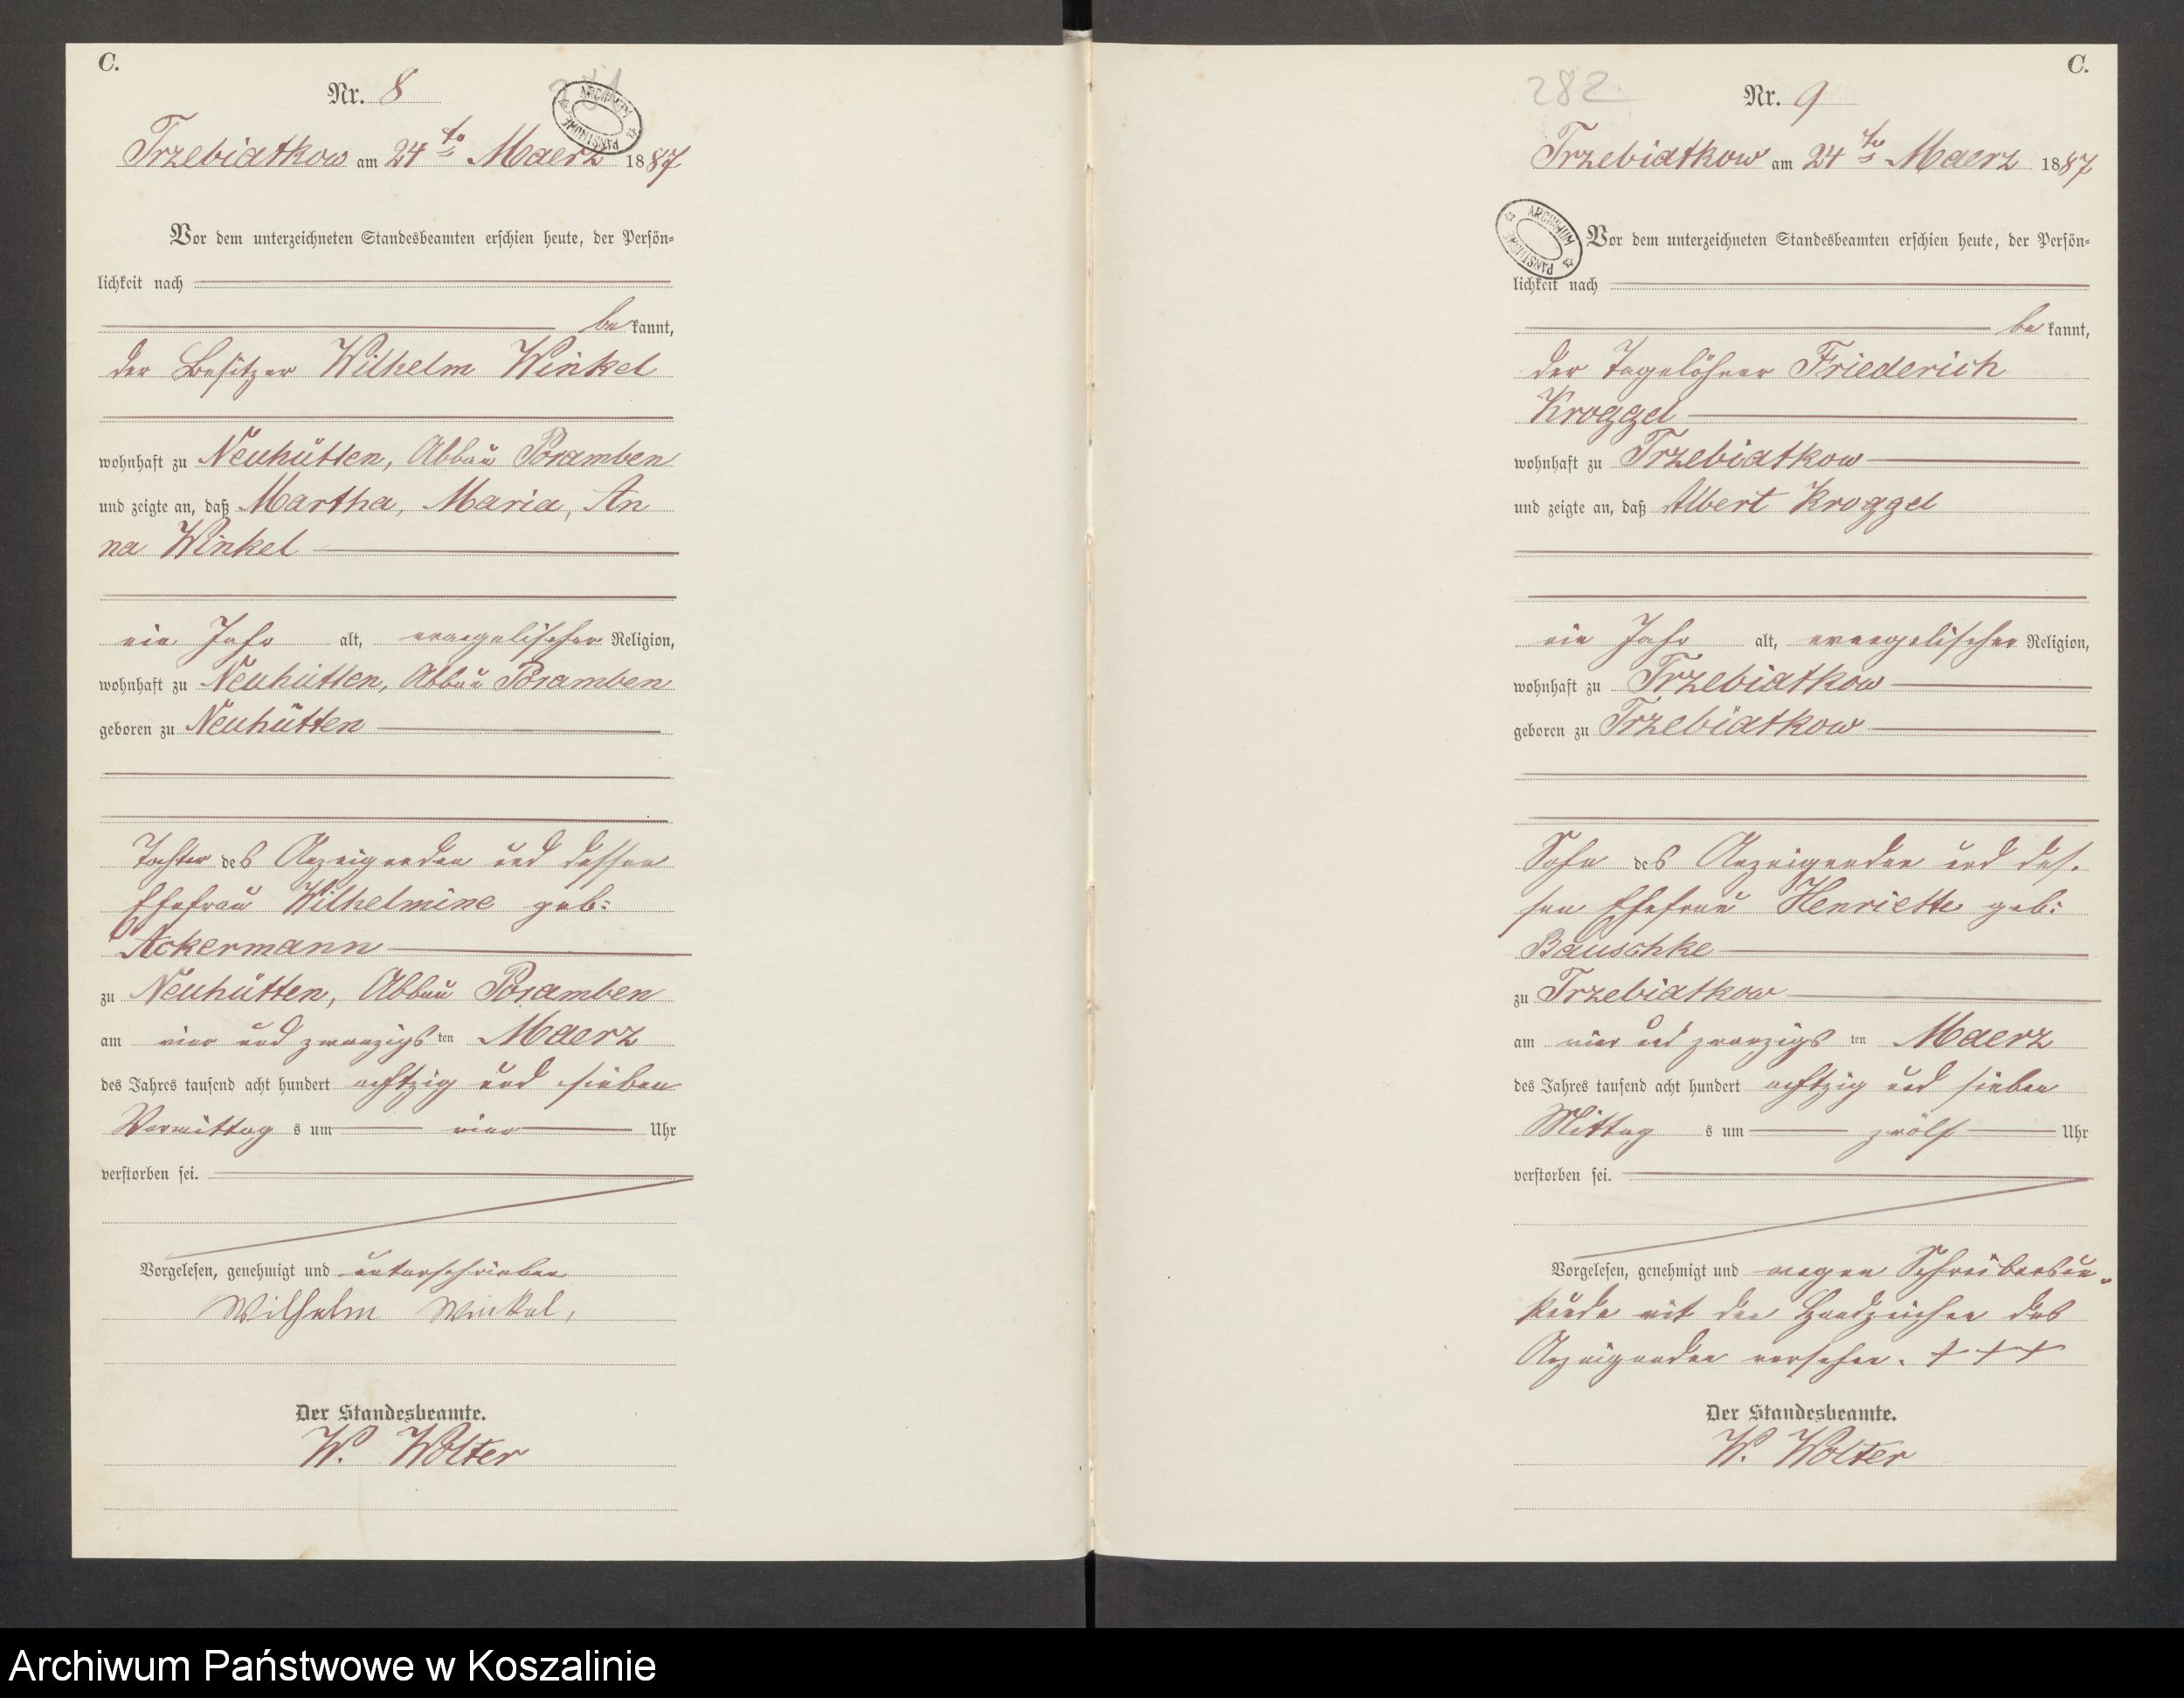 C.
Nr. 8
ARCHIWUM PAŃSTWOWE
Trzebiatkow am 24 ten Maerz 1887
Vor dem unterzeichneten Standesbeamten erschien heute, der Persön-
lichkeit nach
be kannt,
der Besitzer Wilhelm Winkel
wohnhaft zu Neuhütten, Abbau Poramben
und zeigte an, daß Martha, Maria, An
na Winkel
ein Jahr alt, evangelischer Religion,
wohnhaft zu Neuhütten, Abbau Poramben
geboren zu Neuhütten
Tochter des Anzeigenden und dessen
Ehefrau Wilhelmine geb:
Ackermann
zu Neuhütten, Abbau Poramben
am vier und zwanzigsten Maerz
des Jahres tausend acht hundert achtzig und sieben
Vormittag s um vier Uhr
verstorben sei.
Vorgelesen, genehmigt und unterschrieben
Wilhelm Winkel,
Der Standesbeamte.
W. Wolter
C.
282
Nr. 9
Trzebiatkow am 24 ten Maerz 1887
ARCHIWUM PAŃSTWOWE
Vor dem unterzeichneten Standesbeamten erschien heute, der Persön-
lichkeit nach
be kannt,
der Tagelöhner Friederich
Kroggel
wohnhaft zu Trzebiatkow
und zeigte an, daß Albert Kroggel
ein Jahr alt, evangelischer Religion,
wohnhaft zu Trzebiatkow
geboren zu Trzebiatkow
Sohn des Anzeigenden und des-
sen Ehefrau Henriette geb:
Bauschke
zu Trzebiatkow
am vier und zwanzigsten Maerz
des Jahres tausend acht hundert achtzig und sieben
Mittag s um zwölf Uhr
verstorben sei.
Vorgelesen, genehmigt und wegen Schreibensun-
kunde mit den Handzeichen des
Anzeigenden versehen. + + +
Der Standesbeamte.
W. Wolter
Archiwum Państwowe w Koszalinie